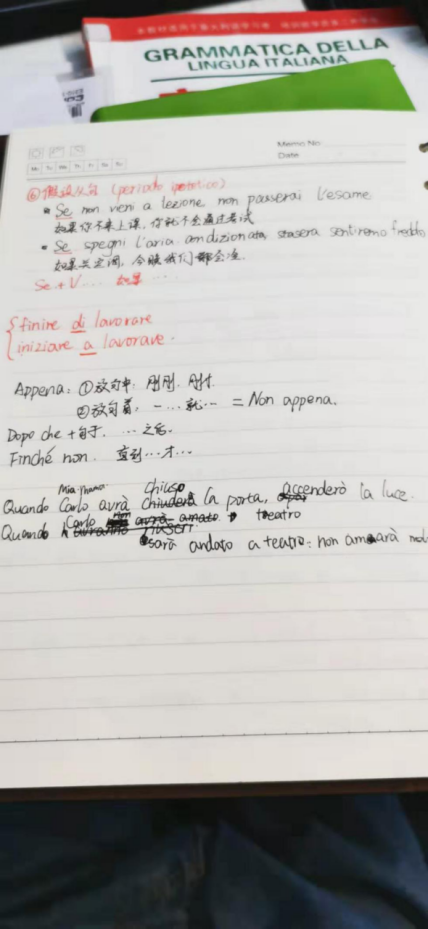 GRAMMATICA DELLA
LINGUA ITALIANA
Memo No.
Date
Mo Tu We Th Fr Sa Su
⑥假设从句 (periodo ipotetico)
Se non veni a lezione non passerai l'esame
如果你不来上课,你就不会通过考试
Se spegni l'aria condizionata stasera sentiremo freddo
如果关空调,今晚我们都会冷.
Se + V.... 如果 ....
finire di lavorare
iniziare a lavorare.
Appena: ①放句中: 刚刚. 刚才.
②放句首, 一...就... = Non appena.
Dopo che + 句子. ... 之后.
Finché non. 直到...才...
Mia mamma chiuso
Quando Carlo avrà chiuderà la porta, accenderò la luce.
Carlo non avrà amato teatro
Quando
sarà andato a teatro: non amarà mol